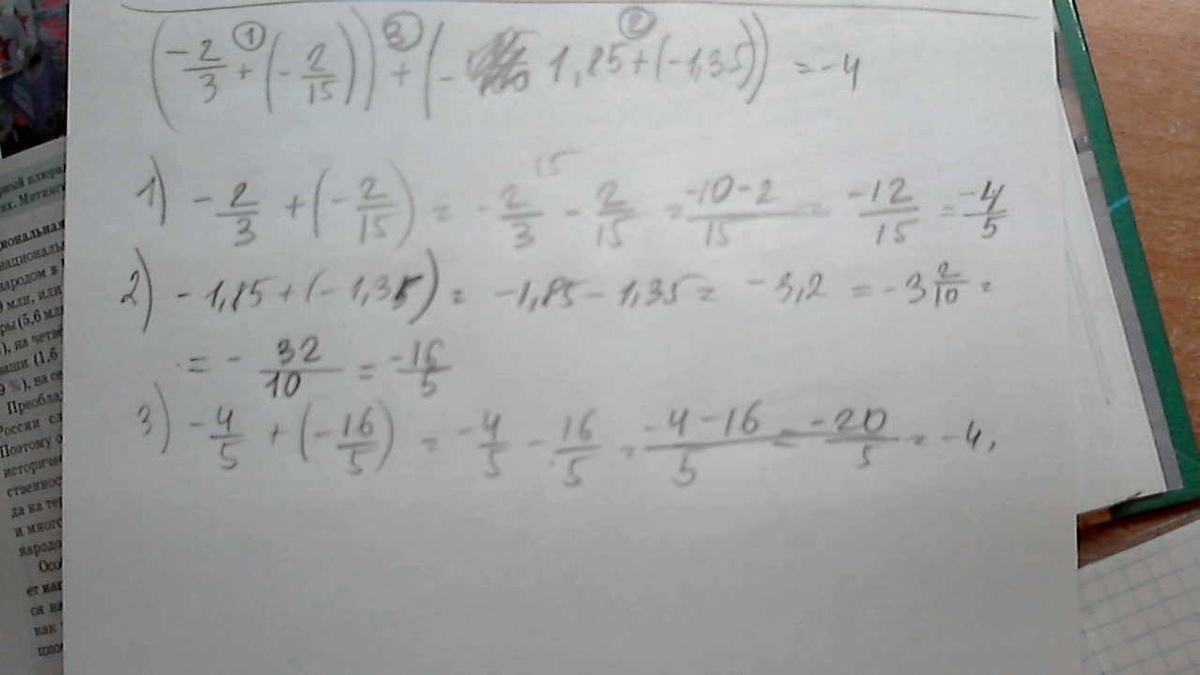 (-2/3 + (-2/15)) + (- 1,85+(-1,35)) = -4
① ③ ②
1) -2/3 + (-2/15) = -2/3 - 2/15 = -10-2/15 = -12/15 = -4/5
15
2) -1,85+(-1,35) = -1,85-1,35 = -3,2 = -3 2/10 =
= - 32/10 = -16/5
3) -4/5 + (-16/5) = -4/5 - 16/5 = -4-16/5 = -20/5 = -4.
циональная
национальн
народом в
мли, или
ры (5,6 мл
), на четв
ваши (1,6
9 %), на се
Преобла
России сл
Поэтому о
историче
ственнос
да на тер
и много
народо
Осо
ет нар
ося на
как
цио